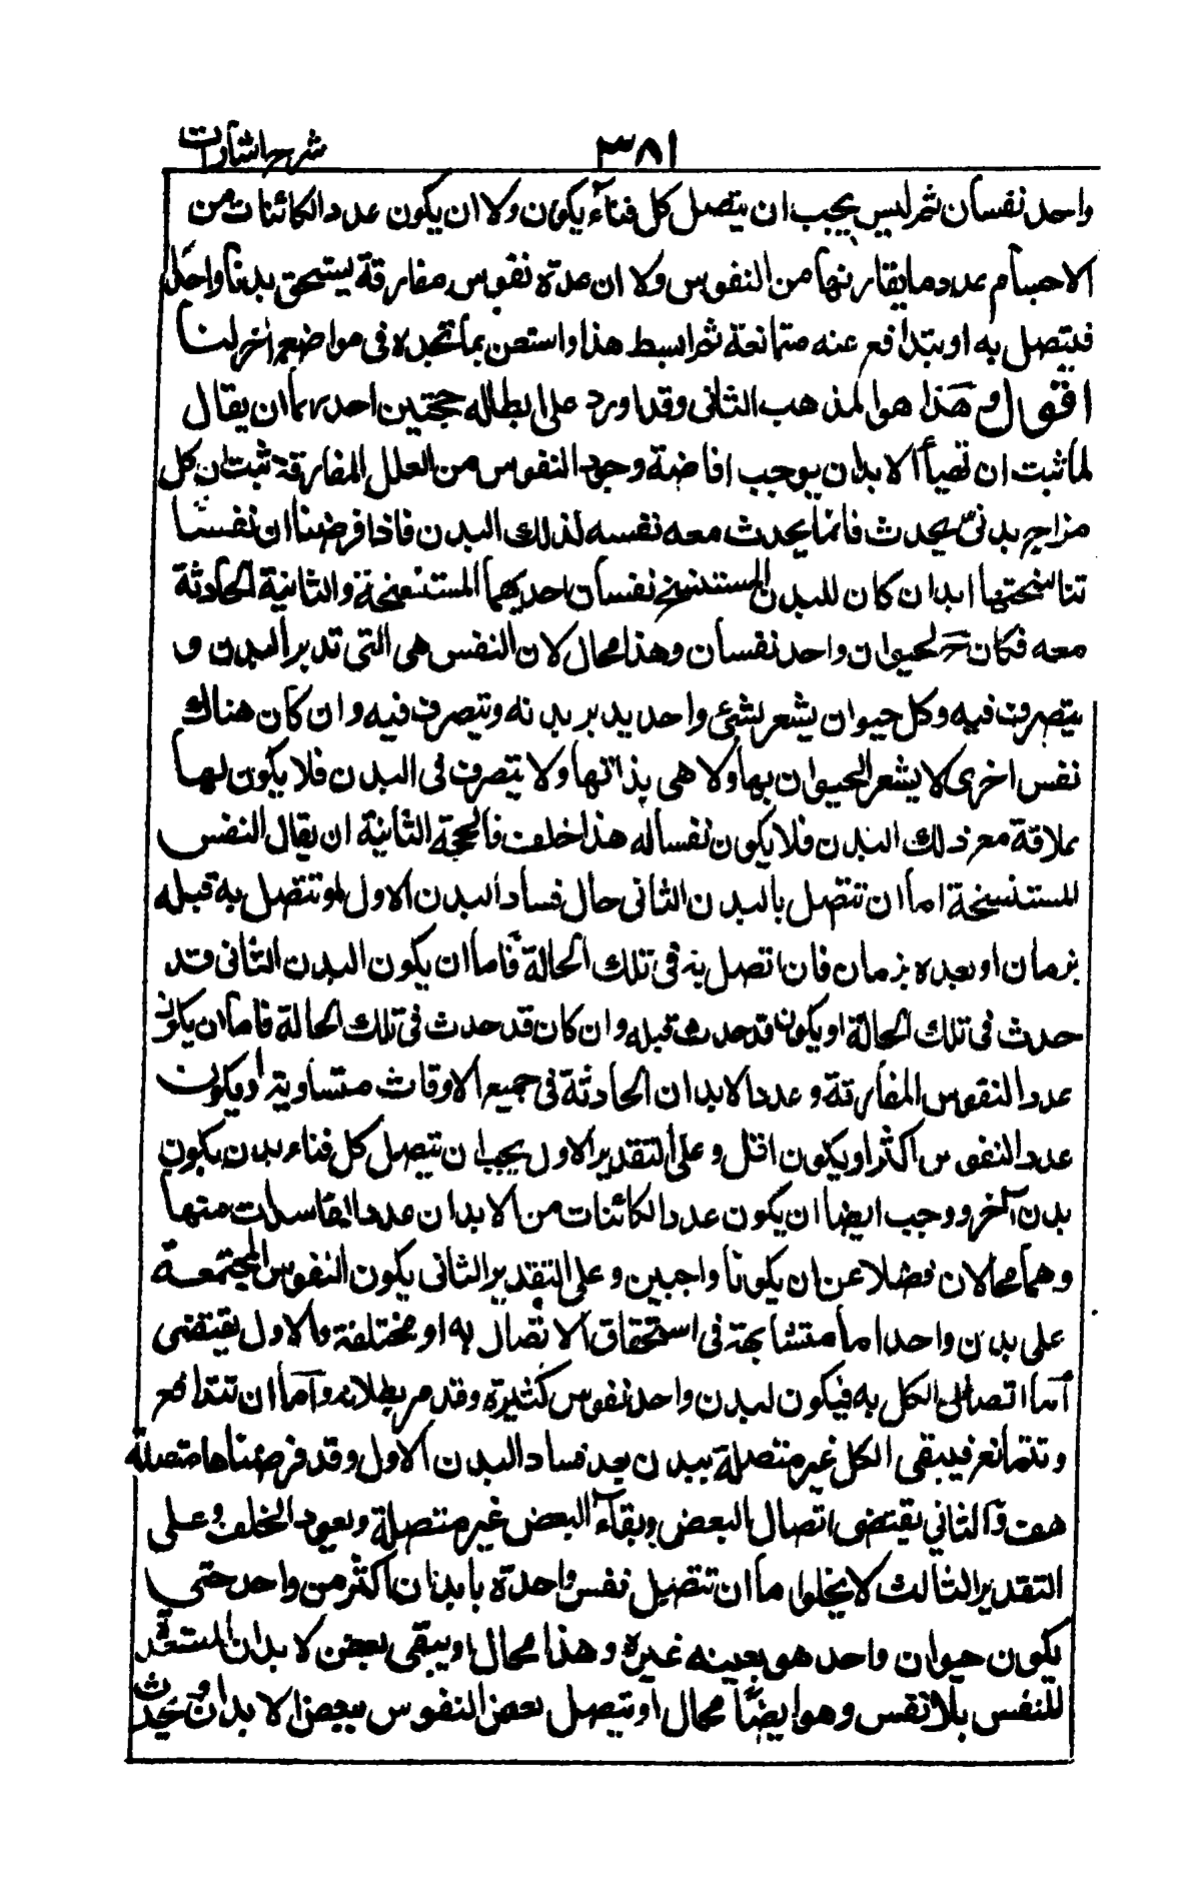 ٣٨١ شرح اشارات
واحد نفسان ثم ليس يجب ان يتصل كل فناء بكون ولا ان يكون عدد الكائنات من
الاجسام عدد ما يقارنها من النفوس ولا ان عدة نفوس مفارقة يستحق بدنا واحدا
فيتصل به او يتدافع عنه متمانعة ثم ابسط هذا واستعن بما تجده فى مواضع اخر لنا
اقول وهذا هو المذهب الثانى وقد اورد على ابطاله حجتين احدهما ان يقال
لما ثبت ان تهيأ الابدان يوجب افاضة وجود النفوس من العلل المفارقة ثبت ان كل
مزاج بدنى يحدث فانما يحدث معه نفسه لذلك البدن فاذا فرضنا ان نفسا
تناسختها ابدان كان للبدن المستنسخ نفسان احديهما المستنسخة والثانية الحادثة
معه فكان ح لحيوان واحد نفسان وهذا محال لان النفس هى التى تدبر البدن و
يتصرف فيه وكل حيوان يشعر بشئ واحد يدبر بدنه ويتصرف فيه وان كان هناك
نفس اخرى لا يشعر الحيوان بها ولا هى بذاتها ولا يتصرف فى البدن فلا يكون لها
علاقة مع ذلك البدن فلا يكون نفسا له هذا خلف فالحجة الثانية ان يقال النفس
المستنسخة اما ان تتصل بالبدن الثانى حال فساد البدن الاول او تتصل به قبله
بزمان او بعده بزمان فان اتصل به فى تلك الحالة فاما ان يكون البدن الثانى قد
حدث فى تلك الحالة او يكون قد حدث قبله وان كان قد حدث فى تلك الحالة فاما ان يكون
عدد النفوس المفارقة وعدد الابدان الحادثة فى جميع الاوقات متساوية او يكون
عدد النفوس اكثر او يكون اقل وعلى التقدير الاول يجب ان تتصل كل فناء بدن بكون
بدن آخر ووجب ايضا ان يكون عدد الكائنات من الابدان عدد الفاسدات منها
وهما محالان فضلا عن ان يكونا واجبين وعلى التقدير الثانى يكون النفوس المجتمعة
على بدن واحد اما متشابهة فى استحقاق الاتصال به او مختلفة والاول يقتضى
اما اتصال الكل به فيكون لبدن واحد نفوس كثيرة وقد مر بطلانه واما ان تتدافع
وتتمانع فيبقى الكل غير متصلة ببدن بعد فساد البدن الاول وقد فرضناها متصلة
هف والثاني يقتضى اتصال البعض وبقاء البعض غير متصلة ويعود الخلف وعلى
التقدير الثالث لا يخلو اما ان تتصل نفس واحدة بابدان اكثر من واحد حتى
يكون حيوان واحد هو بعينه غيره وهذا محال او يبقى بعض الابدان المستعدة
للنفس بلا نفس وهو ايضا محال او تتصل بعض النفوس ببعض الابدان ويحدث